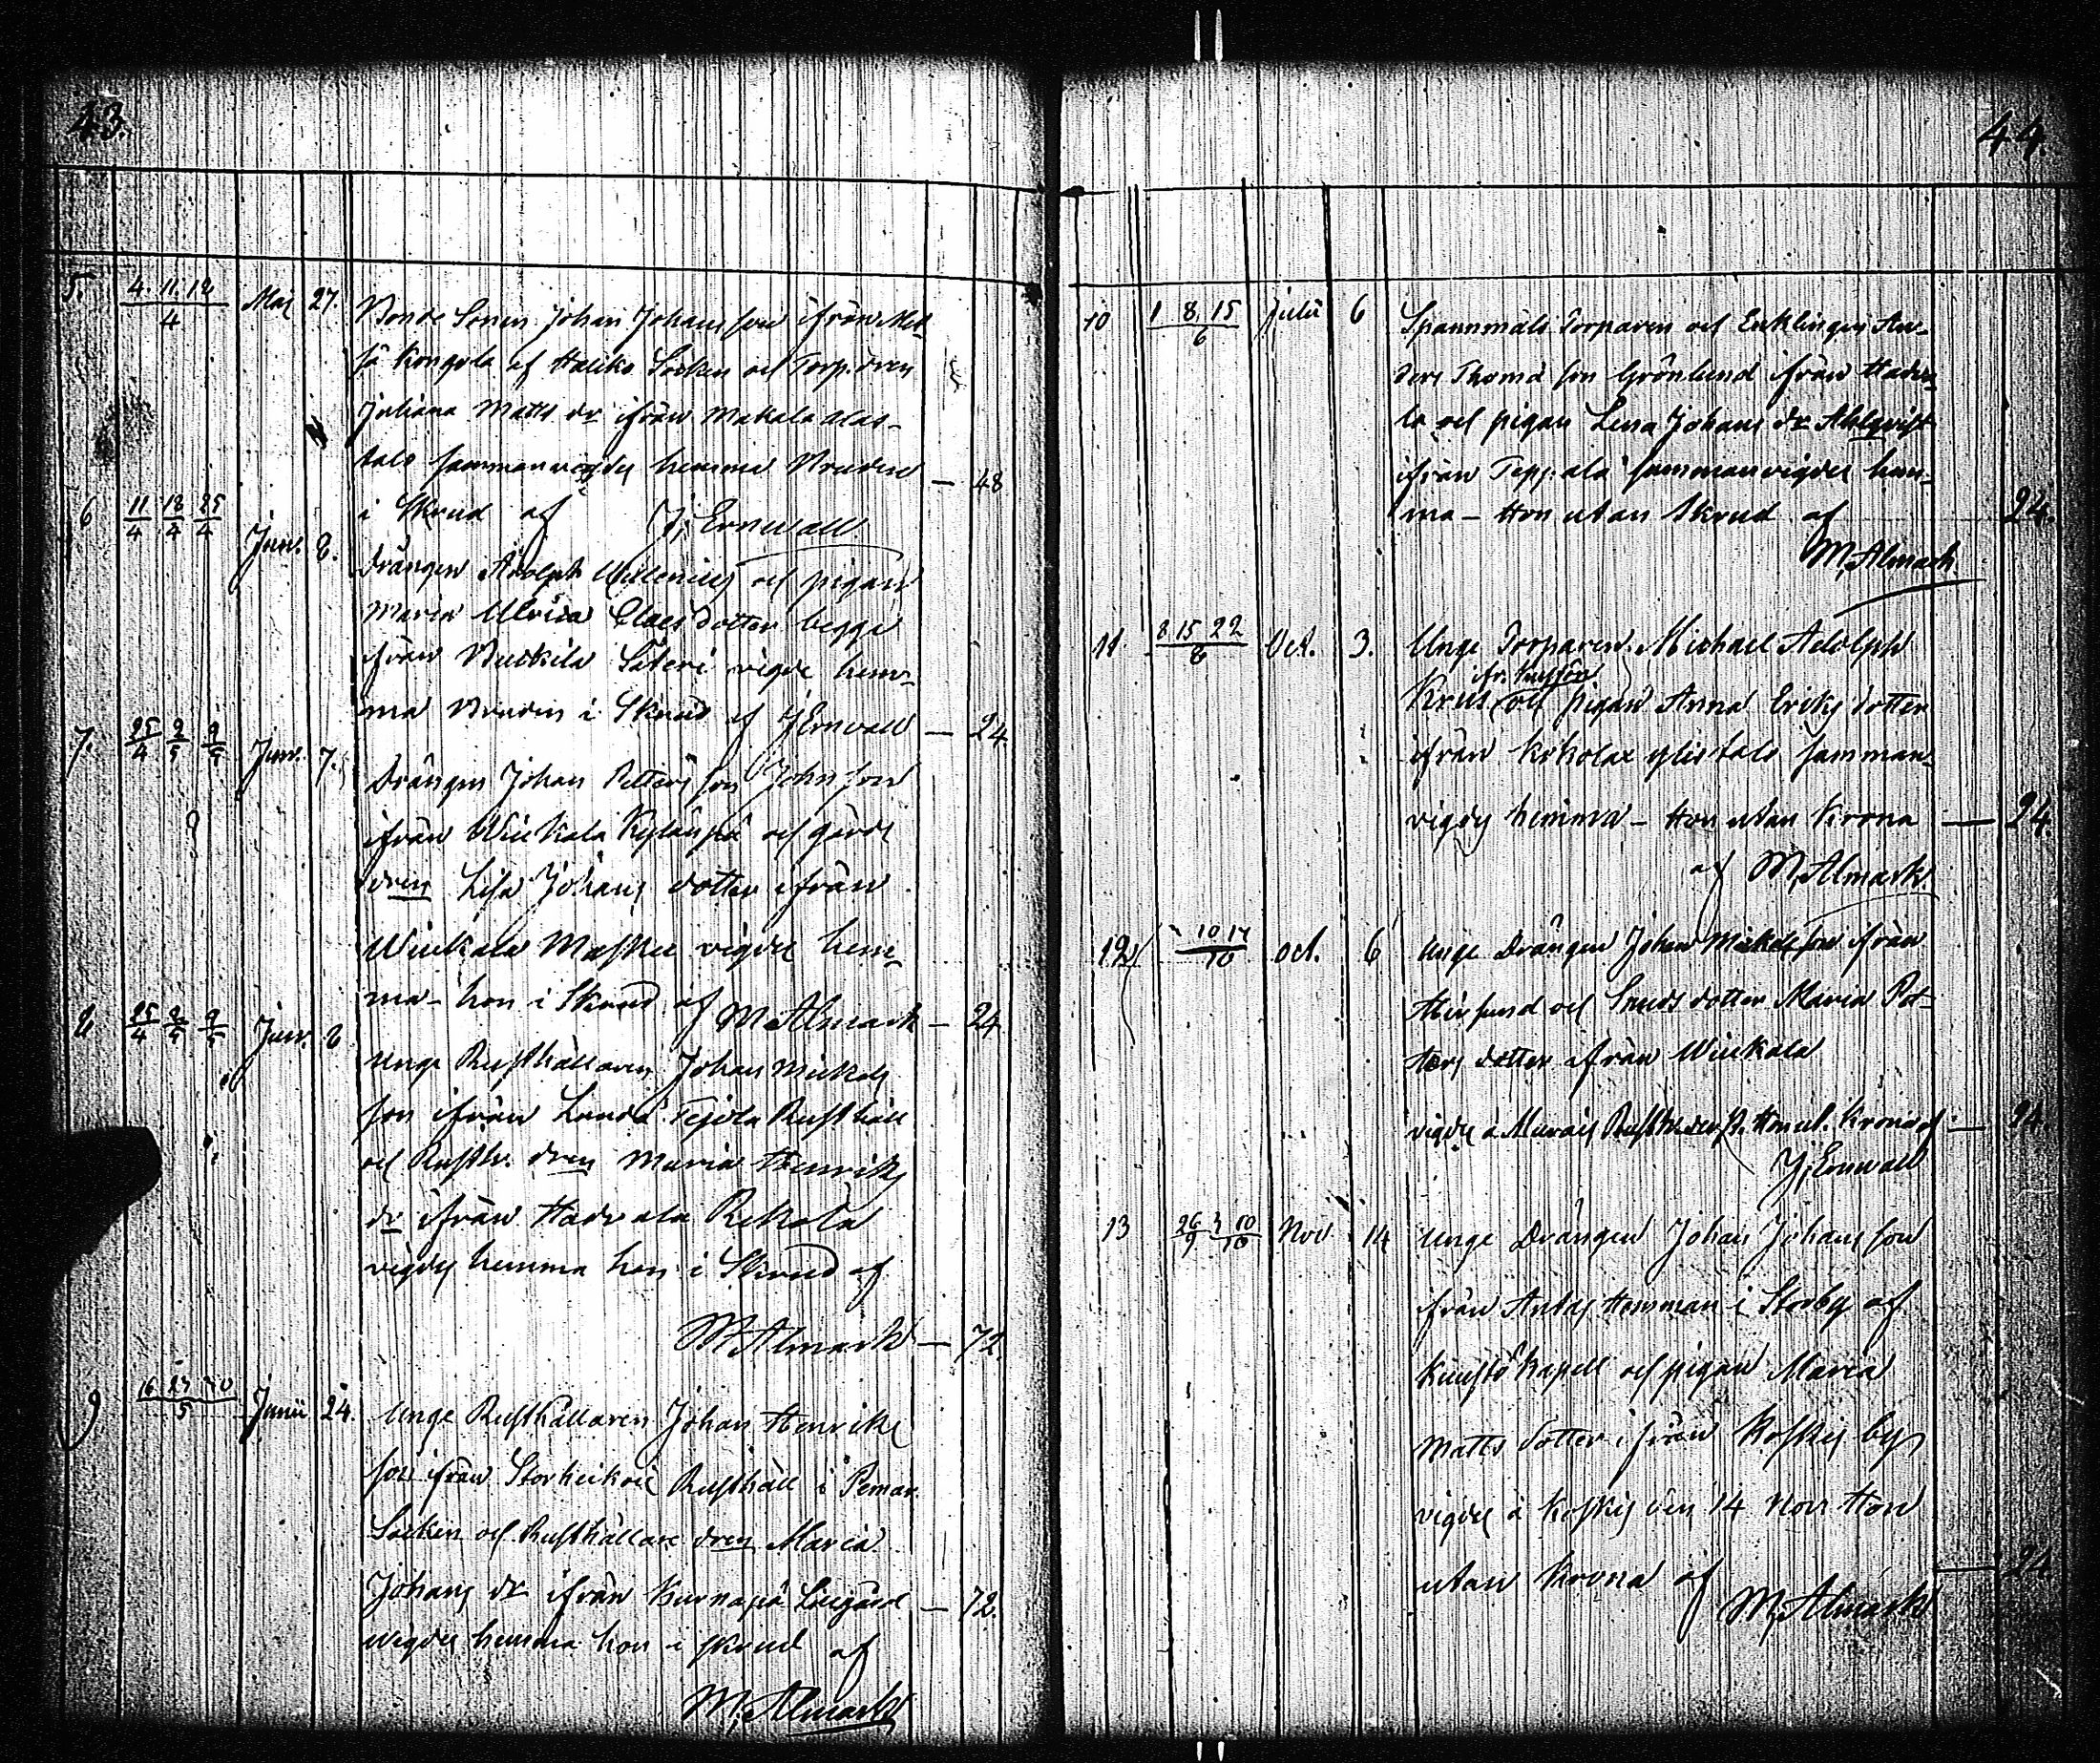 43.
5. 4. 11. 18/4 Maj 27. Bonde Sonen Johan Johans son ifrån Met-
sä Kongola af Haliko Socken och Torp. dren
Juliana Matts dr ifrån Makala Alas-
talo sammanvigdes hemma Bruden — 48
i Skrud af J. Ernwall
6 11/4 18/4 25/4 Jun. 8. Drängen Adolph Willenius och pigan
Maria Ulrica Claes dotter begge
ifrån Säteri vigde hem-
ma Bruden i Skrud af J Ernvall — 24
7. 25/4 2/5 9/5 Jun. 7. Drängen Johan Petters son John son
ifrån Wiukala Kylänpä och gårds
dren Lisa Johans dotter ifrån
Wiukala vigde hem-
ma - hon i Skrud af M. Almark — 24
8 25/4 2/5 9/5 Jun. 8 Unge Rusthållaren Johan Mickels
son ifrån Tejola Rusthåll
och Rusth. dren Maria Henriks
dr ifrån Hadvala Rekola
vigdes hemma hon i Skrud af
M. Almark — 72.
9 16 23 30/5 Junii 24. Unge Rusthållaren Johan Henriks
son ifrån Rusthåll i Pemar
Socken och Rusthållare dren Maria
Johans dr ifrån Kurnapä — 72.
wigdes hemma hon i skrud af
M. Almark
44.
10 1 8 15/6 Julii 6 Spannmåls Torparen och Enklingen An-
ders Thomæ son Grönlund ifrån Hadva-
la och pigan Lena Johans dr Ahlqvist
ifrån Teppala sammanvigdes hem-
ma - Hon utan Skrud af 24.
M. Almark
11 8 15 22/8 Oct. 3. Unge Torparen Michael Adolph
ifr.
Krus och pigan Anna Eriks dotter
ifrån Kokolax ylistalo samman-
vigdes hemma - Hon utan Krona — 24.
af M. Almark
12 10 17/10 Oct. 6 Unge Drängen Johan Mickels son ifrån
och Smeds dotter Maria Pet-
ters dotter ifrån Wiukala
vigde å Hon ut. Krona af — 24.
J. Ernwall
13 26/9 3 10/10 Nov. 14 Unge Drängen Johan Johans son
från Anttas Hemman i Storby af
Kustö Kapell och pigan Maria
Matts dotter ifrån Koskis by
vigdes å Koskis den 14 Nov. Hon
utan Krona af — 24
M. Almark